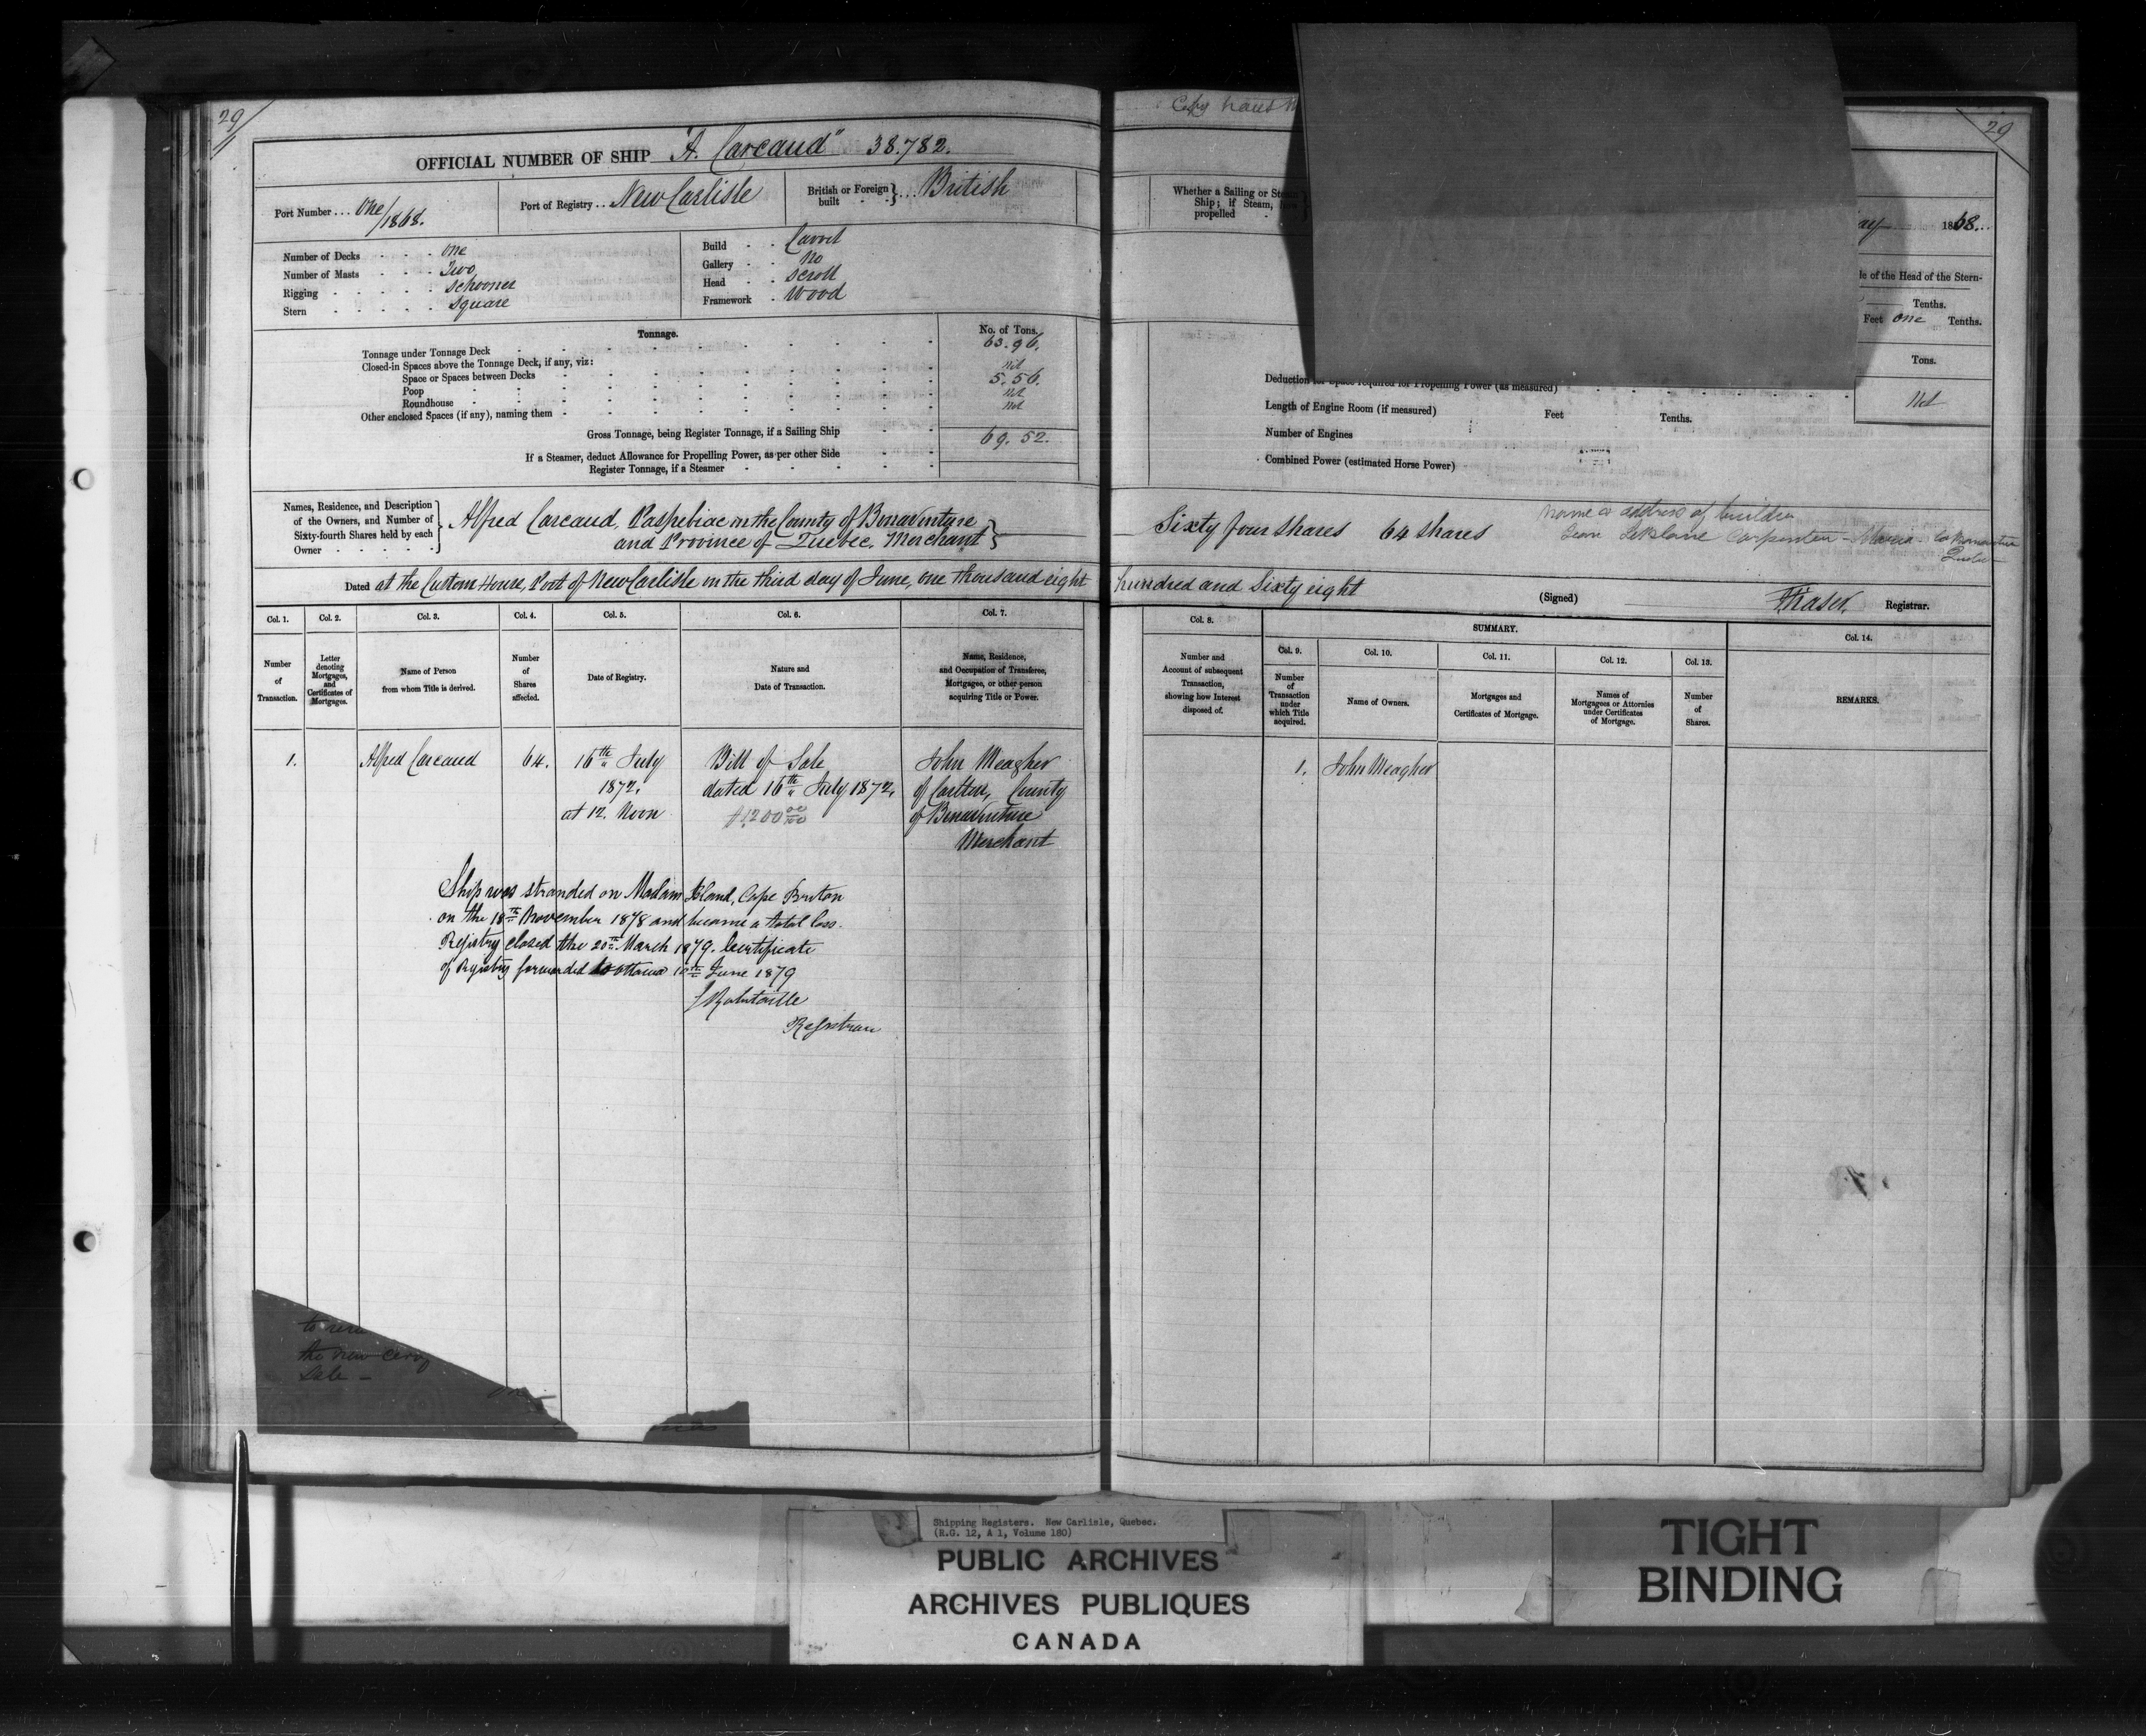 29
OFFICIAL NUMBER OF SHIP "A. Carcaud" 38.782.
Port Number ... One/1868.
Port of Registry .. New Carlisle
British or Foreign built } ... British
Number of Decks . . . One
Number of Masts . . . Two
Rigging . . . . . Schooner
Stern . . . . . Square
Build . . Carvel
Gallery . . No
Head . . Scroll
Framework . Wood
Tonnage.
No. of Tons.
Tonnage under Tonnage Deck 63.96.
Closed-in Spaces above the Tonnage Deck, if any, viz:
Space or Spaces between Decks Nil
Poop 5.56.
Roundhouse Nil
Other enclosed Spaces (if any), naming them Nil
Gross Tonnage, being Register Tonnage, if a Sailing Ship 69.52.
If a Steamer, deduct Allowance for Propelling Power, as per other Side
Register Tonnage, if a Steamer
Names, Residence, and Description
of the Owners, and Number of
Sixty-fourth Shares held by each
Owner
Alfred Carcaud, Paspebiac in the County of Bonaventure
and Province of Quebec. Merchant
Dated at the Custom House, Port of New Carlisle in the third day of June, one thousand eight
Col. 1.
Number
of
Transaction.
Col. 2.
Letter
denoting
Mortgages,
and
Certificates of
Mortgages.
Col. 3.
Name of Person
from whom Title is derived.
Col. 4.
Number
of
Shares
affected.
Col. 5.
Date of Registry.
Col. 6.
Nature and
Date of Transaction.
Col. 7.
Name, Residence,
and Occupation of Transferee,
Mortgagee, or other person
acquiring Title or Power.
1.
Alfred Carcaud
64.
16th July
1872.
at 12. Noon
Bill of Sale
dated 16th July 1872.
$1200 00/100
John Meagher
of Carlton, County
of Bonaventure
Merchant
Ship was stranded on Madam Island, Cape Breton
on the 18th November 1878 and became a total loss.
Registry closed the 20th March 1879. Certificate
of Registry forwarded to Ottawa 10th June 1879
J Robitaille
Registrar
the new
Sale -
29
Whether a Sailing or Steam
Ship; if Steam, how
propelled
ay 1868.
of the Head of the Stern-
Tenths.
Feet one Tenths.
Tons.
Deduction for Space required for Propelling Power (as measured)
Nil
Length of Engine Room (if measured) Feet Tenths.
Number of Engines
Combined Power (estimated Horse Power)
Sixty four shares 64 shares
name & address of builder
Jean LeBlanc Carpenter - Maria
hundred and Sixty eight
(Signed) Fraser, Registrar.
Col. 8.
Number and
Account of subsequent
Transaction,
showing how Interest
disposed of.
SUMMARY.
Col. 9.
Number
of
Transaction
under
which Title
acquired.
Col. 10.
Name of Owners.
Col. 11.
Mortgages and
Certificates of Mortgage.
Col. 12.
Names of
Mortgagees or Attornies
under Certificates
of Mortgage.
Col. 13.
Number
of
Shares.
Col. 14.
REMARKS.
1.
John Meagher
Shipping Registers. New Carlisle, Quebec.
(R.G. 12, A 1, Volume 180)
PUBLIC ARCHIVES
ARCHIVES PUBLIQUES
CANADA
TIGHT
BINDING